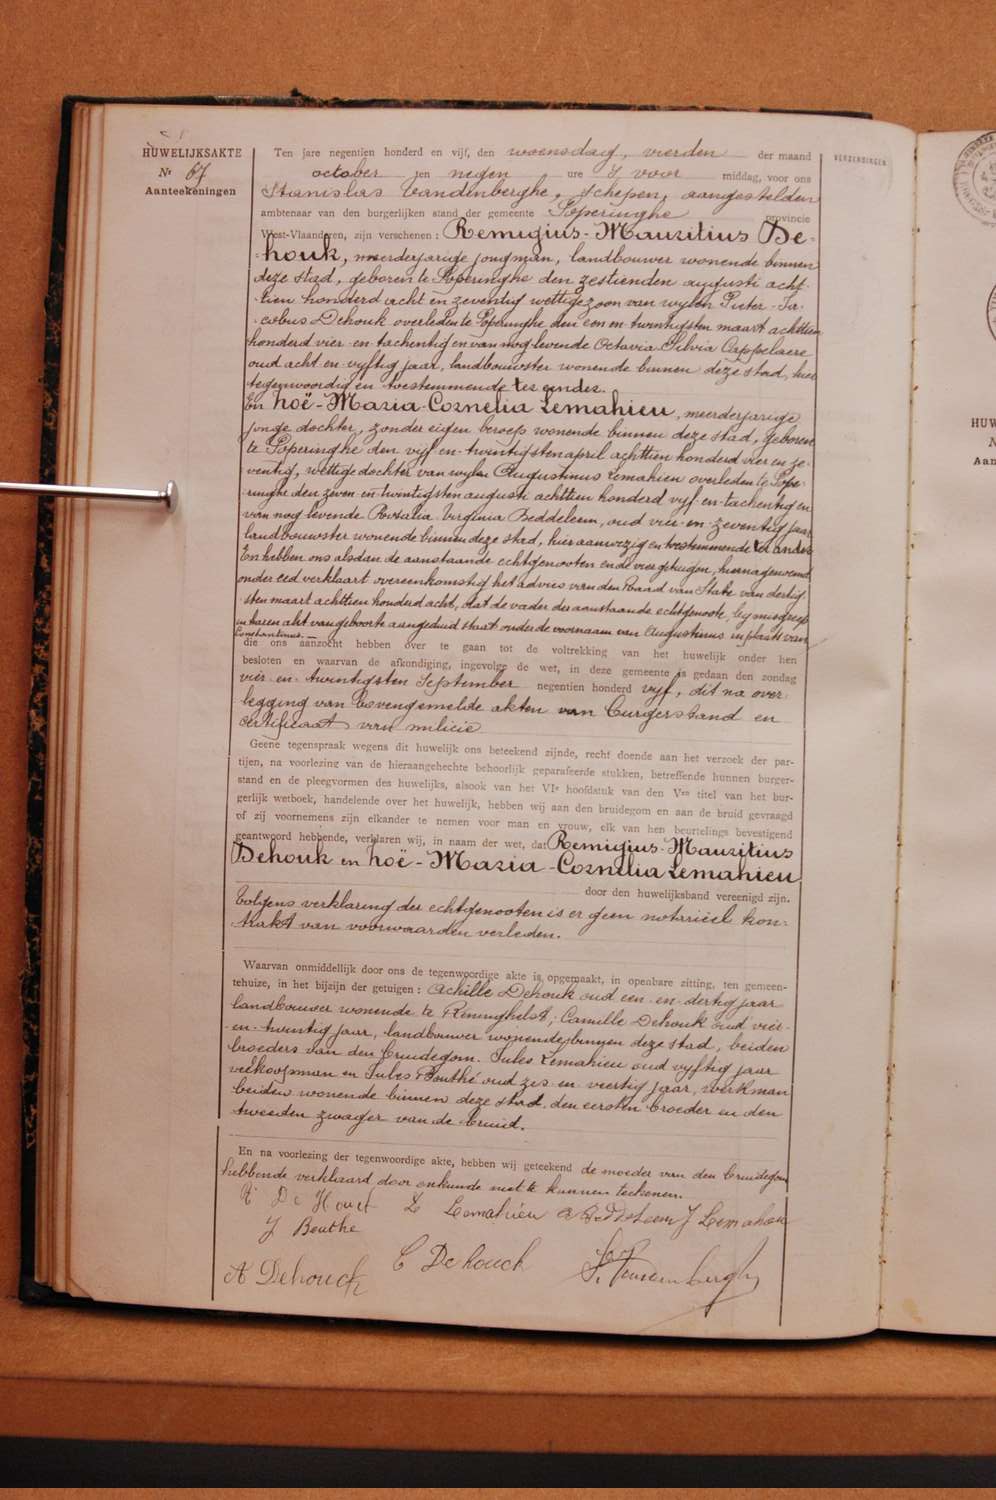 HUWELIJKSAKTE
Nr 67
Aanteekeningen
Ten jare negentien honderd en vijf, den woensdag, vierden der maand
october ten negen ure voor middag, voor ons
Stanislas Vandenberghe, schepen, aangestelden
ambtenaar van den burgerlijken stand der gemeente Poperinghe provincie
West-Vlaanderen, zijn verschenen: Remigius-Mauritius De-
houk, meerderjarige jongman, landbouwer wonende binnen
deze stad, geboren te Poperinghe den zestienden augusti acht-
tien honderd acht en zeventig wettige zoon van wylen Pieter-Ja-
cobus Dehouk overleden te Poperinghe den een-en-twintigsten maart achttien
honderd vier-en-tachentig en van nog levende Octavia Silvia Cappelaere
oud acht-en-vyftig jaar, landbouwster wonende binnen deze stad, hier
tegenwoordig en toestemmende ter eender.
En Zoë-Maria-Cornelia Lemahieu, meerderjarige
jonge dochter, zonder eigen beroep wonende binnen deze stad, geboren
te Poperinghe den vijf-en-twintigsten april achttien honderd vier en ze-
ventig, wettige dochter van wylen Augustinus Lemahieu overleden te Pope-
ringhe den zeven-en-twintigsten augusti achttien honderd vyf-en-tachentig en
van nog levende Rosalia Virginia Beddeleem, oud vier-en-zeventig jaar
landbouwster wonende binnen deze stad, hier aanwezig en toestemmende ter andere
En hebben ons alsdan de aanstaande echtgenooten en de vier getuigen, hiernagenoemd
onder eed verklaart overeenkomstig het advies van den Raad van State van dertig-
sten maart achttien honderd acht, dat de vader der aanstaande echtgenoote, by misgreep
in haren akt van geboorte aangeduid staat onder de voornaam van Augustinus in plaats van
Constantinus.—
die ons aanzocht hebben over te gaan tot de voltrekking van het huwelijk onder hen
besloten en waarvan de afkondiging, ingevolge de wet, in deze gemeente is gedaan den zondag
vier-en-twintigsten September negentien honderd vyf, dit na over-
legging van bovengemelde akten van burgerstand en
certificaat van milicie
Geene tegenspraak wegens dit huwelijk ons beteekend zijnde, recht doende aan het verzoek der par-
tijen, na voorlezing van de hieraangehechte behoorlijk geparafeerde stukken, betreffende hunnen burger-
stand en de pleegvormen des huwelijks, alsook van het VIe hoofdstuk van den Ven titel van het bur-
gerlijk wetboek, handelende over het huwelijk, hebben wij aan den bruidegom en aan de bruid gevraagd
of zij voornemens zijn elkander te nemen voor man en vrouw, elk van hen beurtelings bevestigend
geantwoord hebbende, verklaren wij, in naam der wet, dat Remigius-Mauritius
Dehouk en Zoë-Maria-Cornelia Lemahieu
door den huwelijksband vereenigd zijn.
Volgens verklaring der echtgenooten is er geen notarieel kon-
trakt van voorwaarden verleden.
Waarvan onmiddellijk door ons de tegenwoordige akte is opgemaakt, in openbare zitting, ten gemeen-
tehuize, in het bijzijn der getuigen: Achille Dehouk oud een-en-dertig jaar
landbouwer wonende te Reninghelst, Camille Dehouk oud vier-
en-twintig jaar, landbouwer wonende binnen deze stad, beiden
broeders van den bruidegom. Jules Lemahieu oud vyftig jaar
veekoopman en Jules Bouthé oud zes-en-veertig jaar, werkman
beiden wonende binnen deze stad, den eersten broeder en den
tweeden zwager van de bruid.
En na voorlezing der tegenwoordige akte, hebben wij geteekend de moeder van den bruidegom
hebbende verklaard door onkunde niet te kunnen teekenen.
R De Houck Z Lemahieu R Beddeleem J Lemahieu
J Bouthe
A Dehouck C Dehouck St. Vandenberghe
VERZENDINGEN